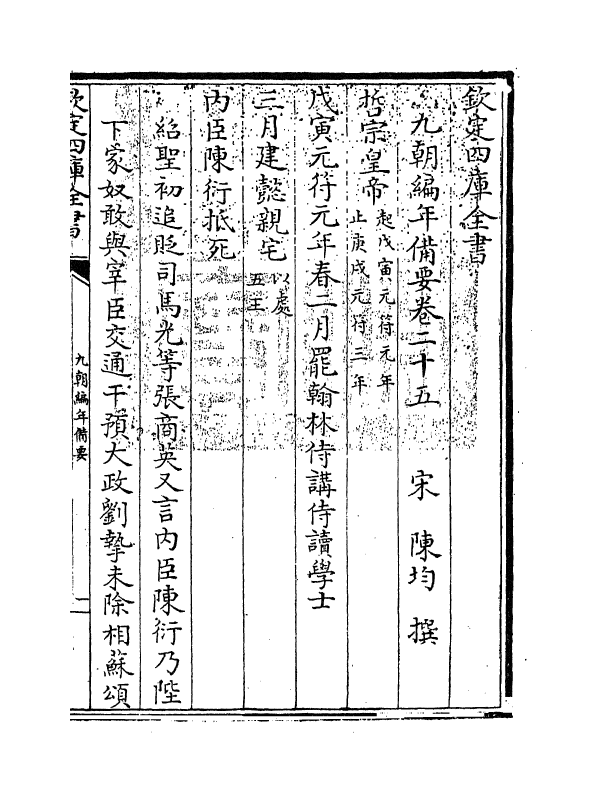 欽定四庫全書
九朝編年備要卷二十五　宋　陳均　撰
哲宗皇帝
起戊寅元符元年
止庚戌元符三年
戊寅元符元年春二月罷翰林侍講侍讀學士
三月建懿親宅
以處
五王
内臣陳衍抵死
紹聖初追貶司馬光等張商英又言内臣陳衍乃陛
下家奴敢與宰臣交通干預大政劉摯未除相蘇頌
欽定四庫全書
九朝編年備要
一